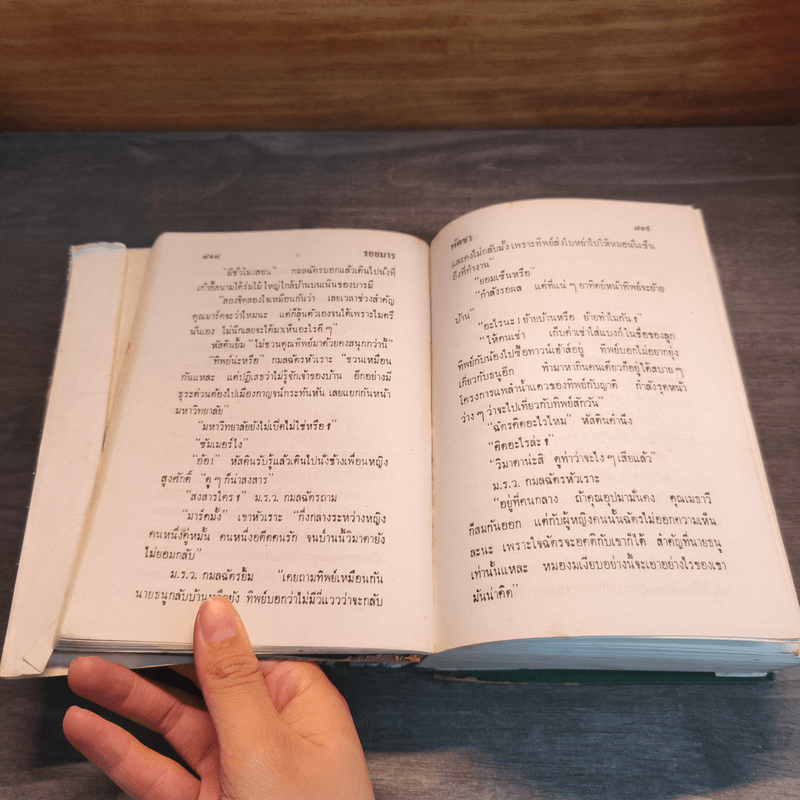 ๘๑๘ รอยมาร
"มีชั่วโมงสอน" กมลฉัตรบอกแล้วเดินไปนั่งที่
เก้าอี้สนามใต้ร่มไม้ใหญ่ใกล้บ้านบนเนินของบารมี
"ลองจิตสองใจเหมือนกันว่า เลยเวลาช่วงสำคัญ
คุณมาร์คจะว่าไหมนะ แต่ก็ลุ้นตัวเองจนได้เพราะไมตรี
นั่นเอง ไม่นึกเลยจะได้มาเห็นอะไรดี ๆ"
หัสดินยิ้ม "ไม่ชวนคุณทิพย์มาด้วยคงสนุกกว่านี้"
"ทิพย์น่ะหรือ" กมลฉัตรหัวเราะ "ชวนเหมือน
กันแหละ แต่ปฏิเสธว่าไม่รู้จักเจ้าของบ้าน อีกอย่างมี
ธุระด่วนต้องไปเมืองกาญจน์กระทันหัน เลยแยกกันหน้า
มหาวิทยาลัย"
"มหาวิทยาลัยยังไม่เปิดไม่ใช่หรือ?"
"ซัมเมอร์ไง"
"อ้อ!" หัสดินรับรู้แล้วเดินไปนั่งข้างเพื่อนหญิง
สูงศักดิ์ "ดู ๆ ก็น่าสงสาร"
"สงสารใคร?" ม.ร.ว. กมลฉัตรถาม
"มาร์คมั้ง" เขาหัวเราะ "กึ่งกลางระหว่างหญิง
คนหนึ่งคู่หมั้น คนหนึ่งอดีตคนรัก จนป่านนี้วิมาดายัง
ไม่ยอมกลับ"
ม.ร.ว. กมลฉัตรยิ้ม "เคยถามทิพย์เหมือนกัน
นายธนูกลับบ้านหรือยัง ทิพย์บอกว่าไม่มีวี่แววว่าจะกลับ
พัดชา ๘๑๙
และคงไม่กลับมั้ง เพราะทิพย์ส่งใบหย่าไปให้หมอนั่นเซ็น
ถึงที่ทำงาน"
"ยอมเซ็นหรือ"
"กำลังรอผล แต่ที่แน่ ๆ อาทิตย์หน้าทิพย์จะย้าย
บ้าน"
"อะไรนะ! ย้ายบ้านหรือ ย้ายทำไมกัน?"
"ให้คนเช่า เก็บค่าเช่าใส่แบงก์ในชื่อของลูก
ทิพย์กับน้องไปซื้อทาวน์เฮ้าส์อยู่ ทิพย์บอกไม่อยากยุ่ง
เกี่ยวกับธนูอีก ทำมาหากินคนเดียวก็อยู่ได้สบาย ๆ
โครงการแพลำน้ำแควของทิพย์กับญาติ กำลังรุดหน้า
ว่าง ๆ ว่าจะไปเที่ยวกับทิพย์สักวัน"
"ฉัตรคิดอะไรไหม" หัสดินคำนึง
"คิดอะไรล่ะ?"
"วิมาดาน่ะสิ ดูท่าว่าจะไง ๆ เสียแล้ว"
ม.ร.ว. กมลฉัตรหัวเราะ
"อยู่ที่คนกลาง ถ้าคุณอุปมามั่นคง คุณเมธาวี
ก็สมกันออก แต่กับผู้หญิงคนนั้นฉัตรไม่ออกความเห็น
ละนะ เพราะใจฉัตรจะอคติกับเขาก็ได้ สำคัญที่นายธนู
เท่านั้นแหละ หมองมเงียบอย่างนี้จะเอาอย่างไรของเขา
มันน่าคิด"